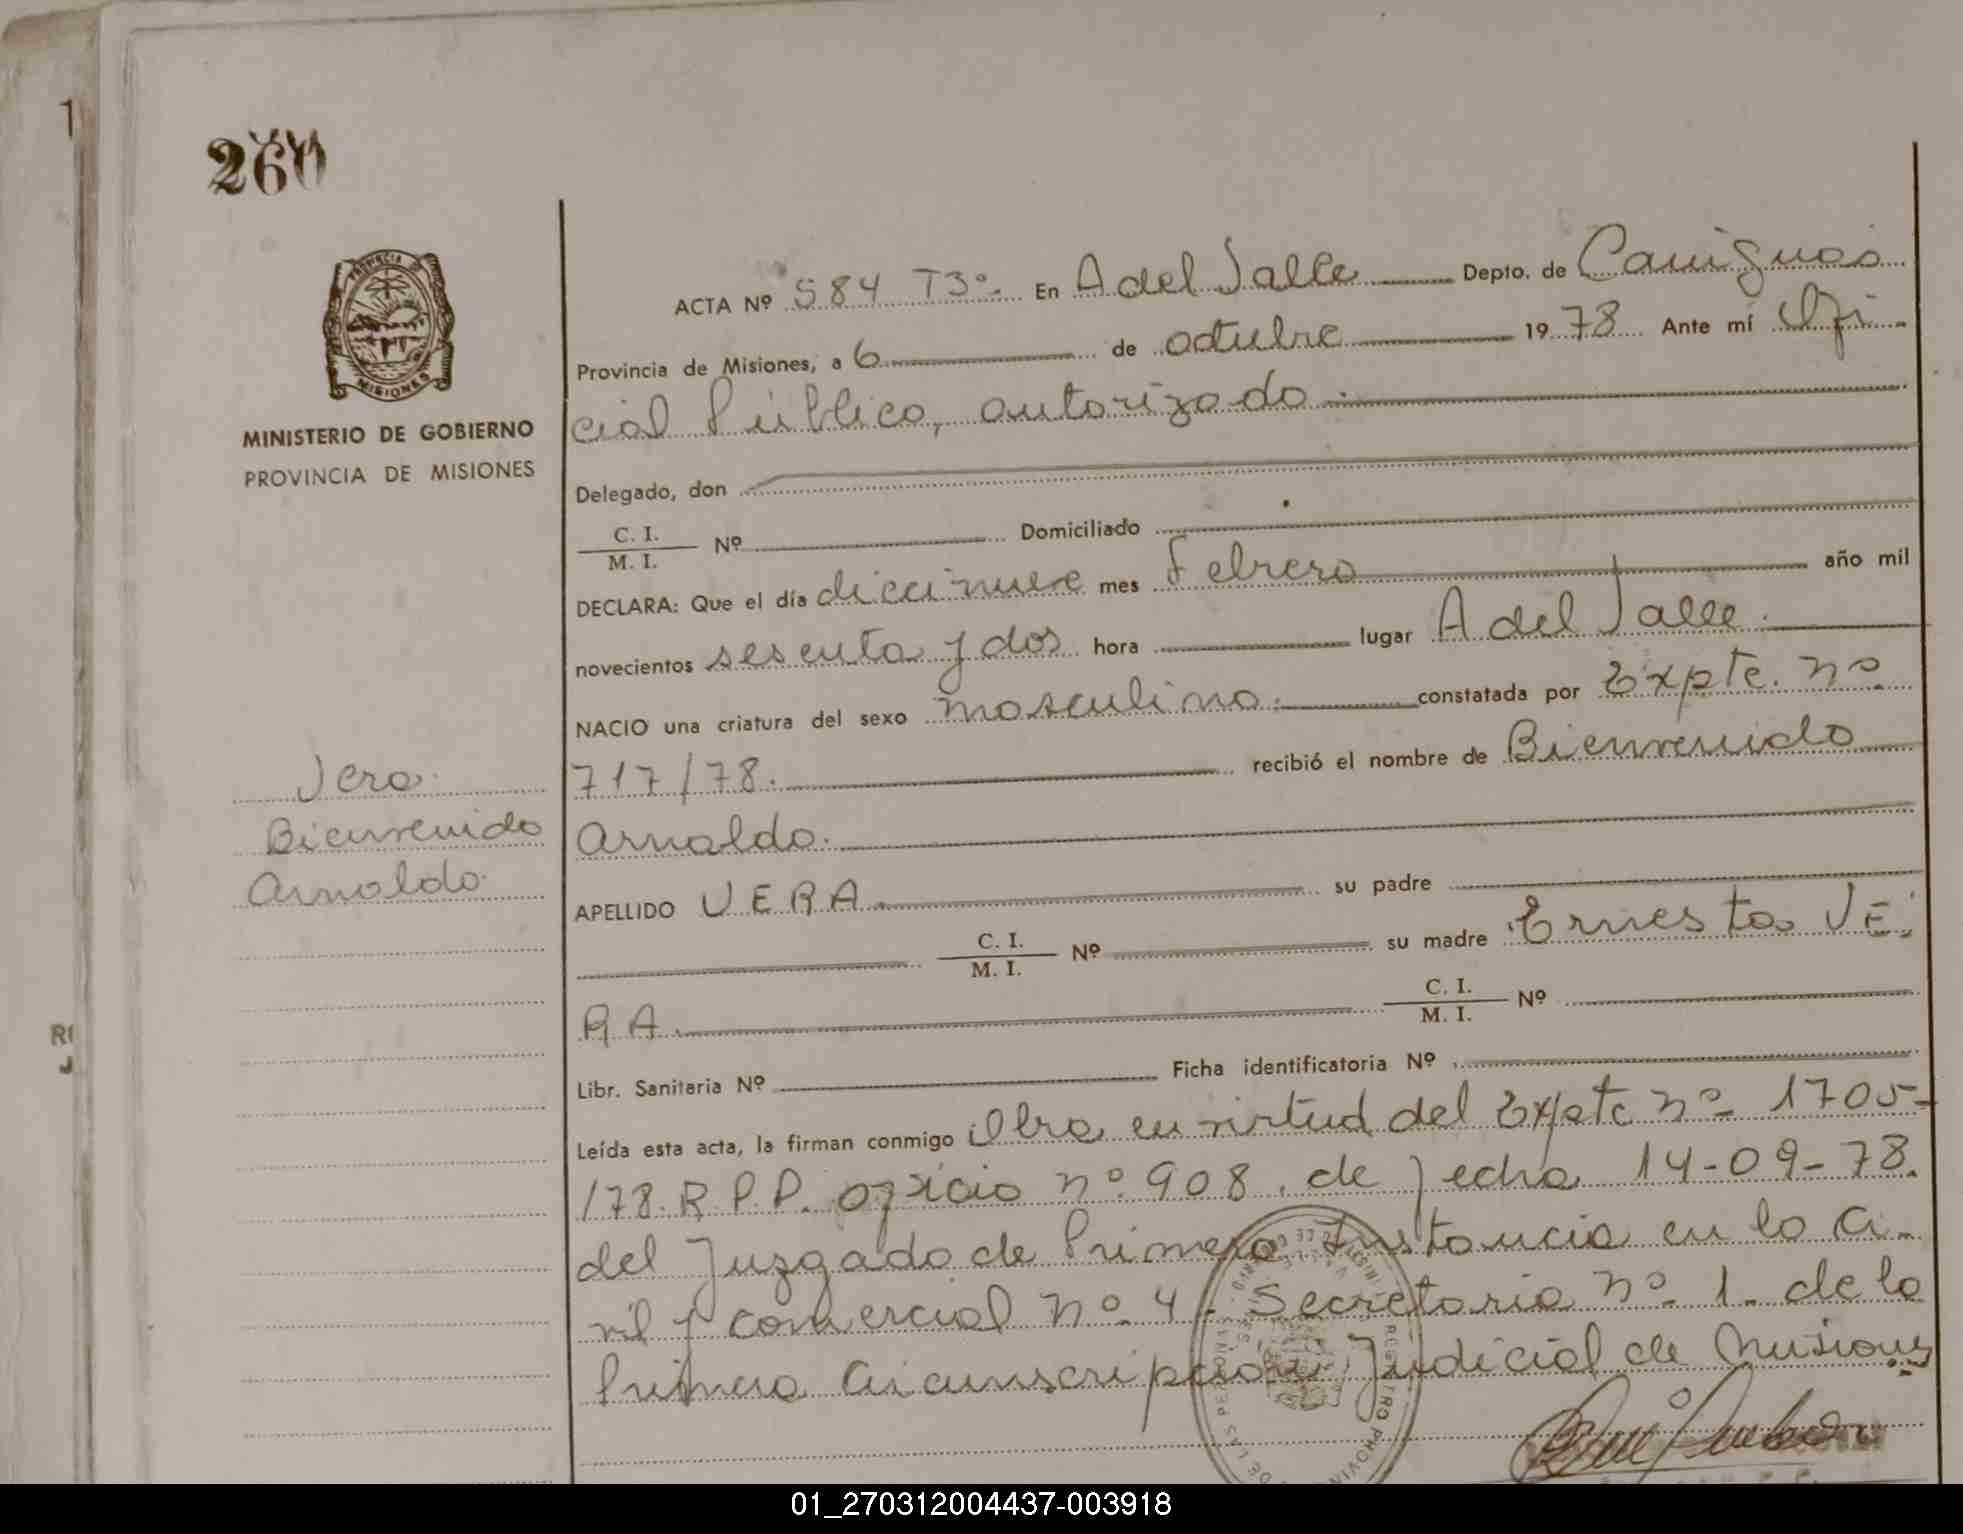 1
260
MINISTERIO DE GOBIERNO
PROVINCIA DE MISIONES
ACTA Nº 584 T3º. En A del Valle Depto. de Cainguás
Provincia de Misiones, a 6 de octubre 1978 Ante mí Ofi
cial Público, autorizado.
Delegado, don
C. I.
M. I. Nº Domiciliado
DECLARA: Que el día diecinueve mes Febrero año mil
novecientos sesenta y dos hora lugar A del Valle.
NACIO una criatura del sexo masculino. constatada por Expte. nº
717/78. recibió el nombre de Bienvenido
Arnaldo.
APELLIDO VERA. su padre
C. I.
M. I. Nº su madre Ernesta VE-
RA. C. I.
M. I. Nº
Libr. Sanitaria Nº Ficha identificatoria Nº
Leída esta acta, la firman conmigo Obra en virtud del Expte nº 1705-
/78. R.P.P. oficio nº 908. de fecha 14-09-78.
del Juzgado de Primera Instancia en lo Ci-
vil y comercial nº 4- Secretaria nº 1. de la
Primera Circunscripcion Judicial de Misiones
Vera.
Bienvenido
Arnaldo.
REGISTRO PROVIN
DE LAS PER
01_270312004437-003918